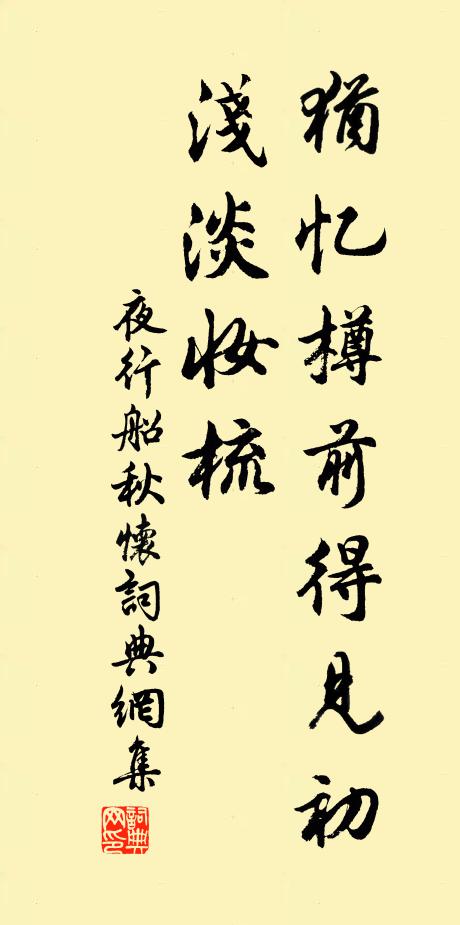 猶忆樽前得見初
淺淡妝梳
夜行船秋懷詞典網集
詞典网印